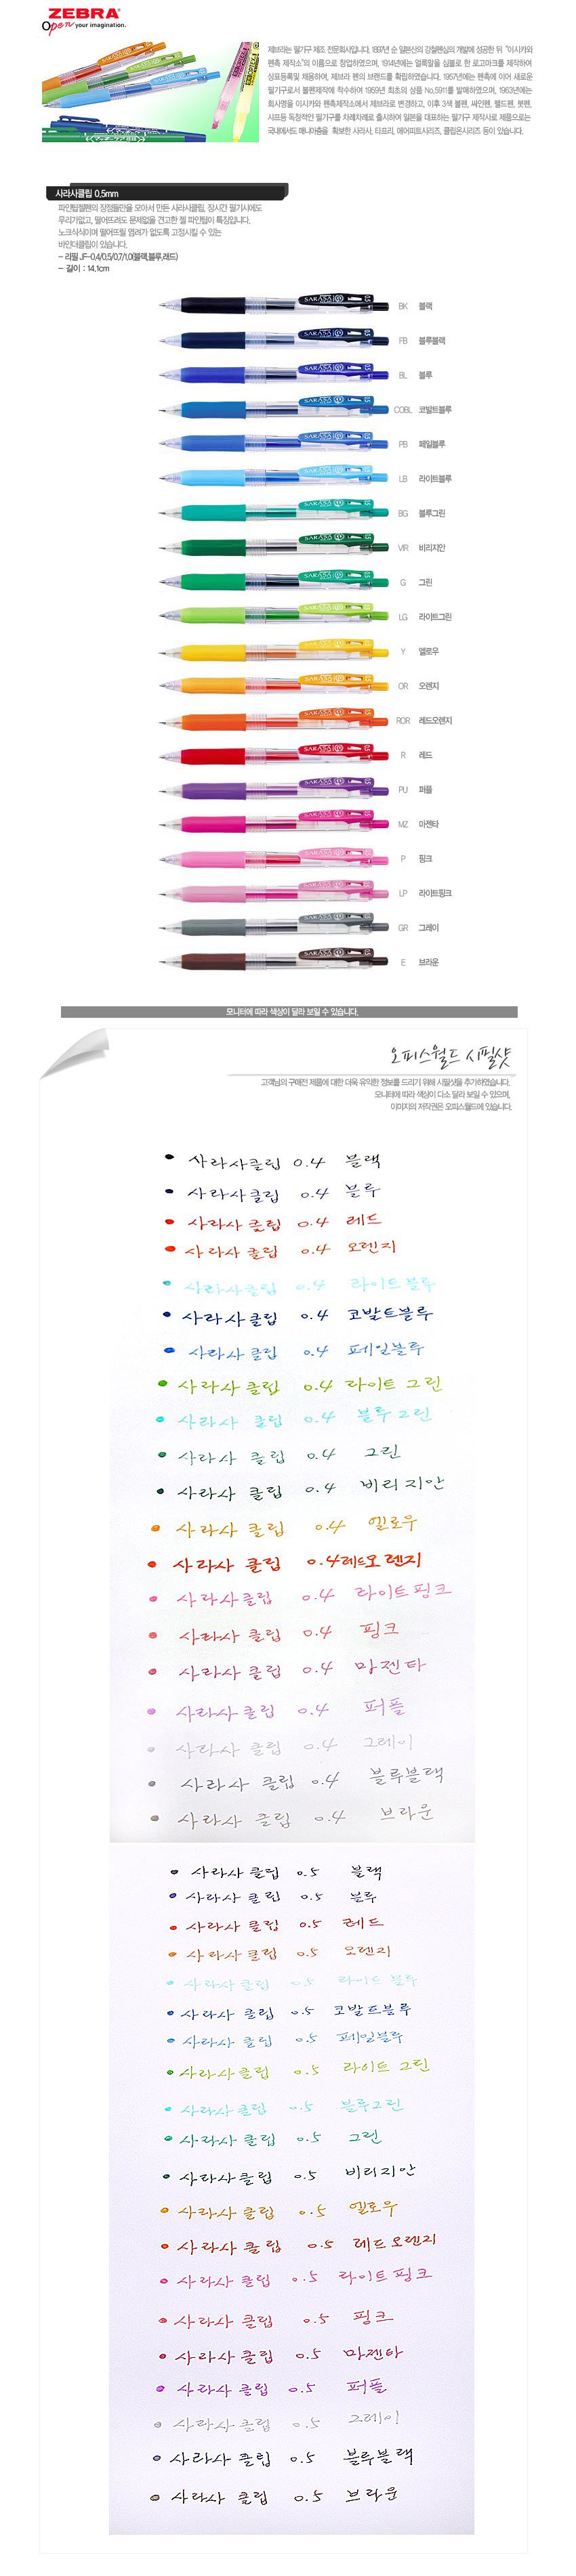 ZEBRA
Open your imagination.
제브라는 필기구 제조 전문회사입니다. 1897년 순 일본산의 강철펜심의 개발에 성공한 뒤 "이시카와
펜촉 제작소"의 이름으로 창업하였으며, 1914년에는 얼룩말을 심볼로 한 로고마크를 제작하여
상표등록및 채용하여, 제브라 펜의 브랜드를 확립하였습니다. 1957년에는 펜촉에 이어 새로운
필기구로서 볼펜제작에 착수하여 1959년 최초의 상품 No.5911를 발매하였으며, 1963년에는
회사명을 이시카와 펜촉제작소에서 제브라로 변경하고, 이후 3색 볼펜, 싸인펜, 펠드펜, 붓펜,
샤프등 독창적인 필기구를 차례차례로 출시하여 일본을 대표하는 필기구 제작사로 제품으로는
국내에서도 매니아층을 확보한 사라사, 타프리, 에어피트시리즈, 클립온시리즈 등이 있습니다.
사라사클립 0.5mm
파인팁젤펜의 장점들만을 모아서 만든 사라사클립, 장시간 필기시에도
무리가없고, 떨어뜨려도 문제없을 견고한 젤 파인팁이 특징입니다.
노크식식이며 떨어뜨릴 염려가 없도록 고정시킬 수 있는
바인더클립이 있습니다.
- 리필 JF-0.4/0.5/0.7/1.0(블랙,블루,레드)
- 길이 : 14.1cm
BK 블랙
FB 블루블랙
BL 블루
COBL 코발트블루
PB 페일블루
LB 라이트블루
BG 블루그린
VIR 비리지안
G 그린
LG 라이트그린
Y 옐로우
OR 오렌지
ROR 레드오렌지
R 레드
PU 퍼플
MZ 마젠타
P 핑크
LP 라이트핑크
GR 그레이
E 브라운
모니터에 따라 색상이 달라 보일 수 있습니다.
오피스월드 시필샷
고객님의 구매전 제품에 대한 더욱 유익한 정보를 드리기 위해 시필샷을 추가하였습니다.
모니터에 따라 색상이 다소 달라 보일 수 있으며,
이미지의 저작권은 오피스월드에 있습니다.
사라사클립 0.4 블랙
사라사클립 0.4 블루
사라사클립 0.4 레드
사라사클립 0.4 오렌지
사라사클립 0.4 라이트블루
사라사클립 0.4 코발트블루
사라사클립 0.4 페일블루
사라사 클립 0.4 라이트 그린
사라사 클립 0.4 블루그린
사라사 클립 0.4 그린
사라사 클립 0.4 비리지안
사라사 클립 0.4 옐로우
사라사 클립 0.4 레드오렌지
사라사클립 0.4 라이트핑크
사라사 클립 0.4 핑크
사라사 클립 0.4 마젠타
사라사 클립 0.4 퍼플
사라사 클립 0.4 그레이
사라사 클립 0.4 블루블랙
사라사 클립 0.4 브라운
사라사 클립 0.5 블랙
사라사 클립 0.5 블루
사라사 클립 0.5 레드
사라사 클립 0.5 오렌지
사라사 클립 0.5 라이트 블루
사라사 클립 0.5 코발트블루
사라사 클립 0.5 페일블루
사라사 클립 0.5 라이트 그린
사라사 클립 0.5 블루그린
사라사 클립 0.5 그린
사라사 클립 0.5 비리지안
사라사 클립 0.5 옐로우
사라사 클립 0.5 레드오렌지
사라사 클립 0.5 라이트핑크
사라사 클립 0.5 핑크
사라사 클립 0.5 마젠타
사라사 클립 0.5 퍼플
사라사 클립 0.5 그레이
사라사 클립 0.5 블루블랙
사라사 클립 0.5 브라운